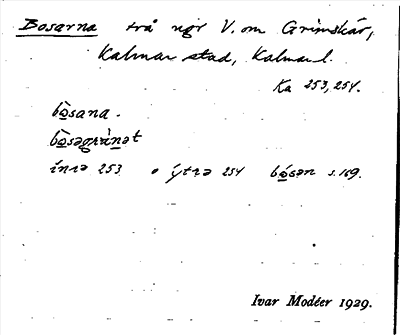 Bosarna två ugr V. om Grimskär,
Kalmar stad, Kalmar l.
Ka 253, 254.
bo̱̍sana.
bo̱̍səgrànət
ínrə 253 o ýtrə 254 bo̱̍sən s. 169.
Ivar Modéer 1929.